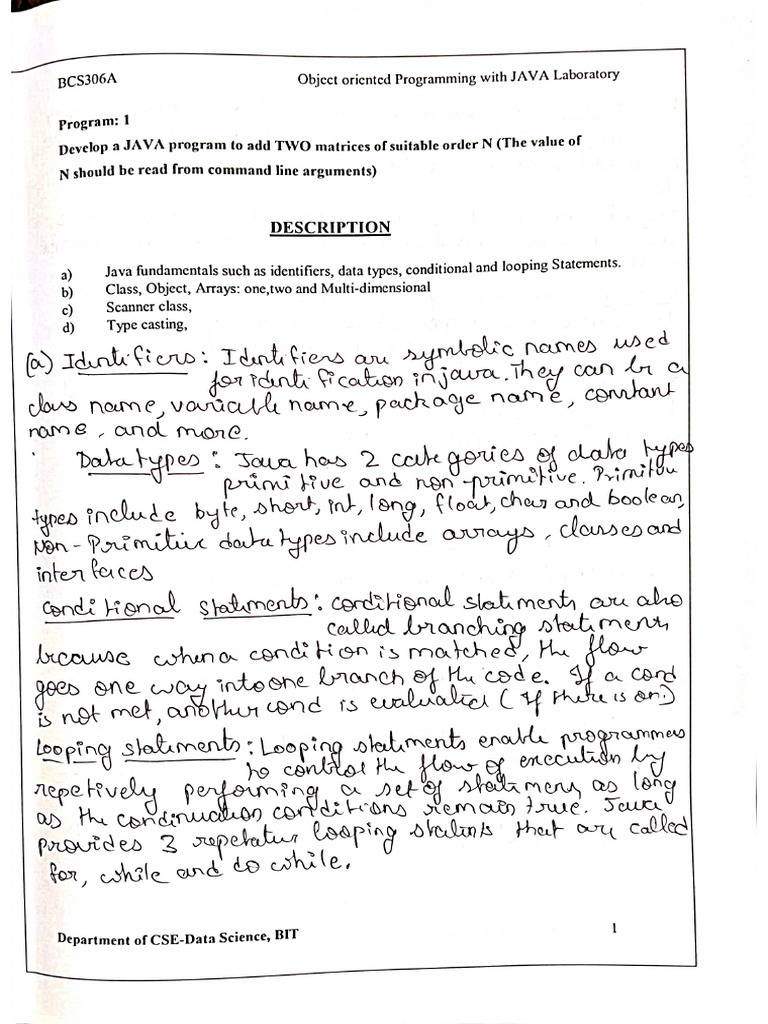 BCS306A Object oriented Programming with JAVA Laboratory
Program: 1
Develop a JAVA program to add TWO matrices of suitable order N (The value of
N should be read from command line arguments)
DESCRIPTION
a) Java fundamentals such as identifiers, data types, conditional and looping Statements.
b) Class, Object, Arrays: one,two and Multi-dimensional
c) Scanner class,
d) Type casting,
(a) Identifiers : Identifiers are symbolic names used
for identification in java. They can be a
class name, variable name, package name, constant
name, and more.
Data types : Java has 2 categories of data types
primitive and non-primitive. Primitive
types include byte, short, int, long, float, char and boolean,
Non-Primitive data types include arrays, classes and
interfaces
conditional statements : conditional statements are also
called branching statements
because when a condition is matched, the flow
goes one way into one branch of the code. If a cond
is not met, another cond is evaluated (if there is one)
Looping statements : Looping statements enable programmers
to control the flow of execution by
repetively performing a set of statements as long
as the continuation conditions remain true. Java
provides 3 looping that are called
for, while and do while.
Department of CSE-Data Science, BIT 1